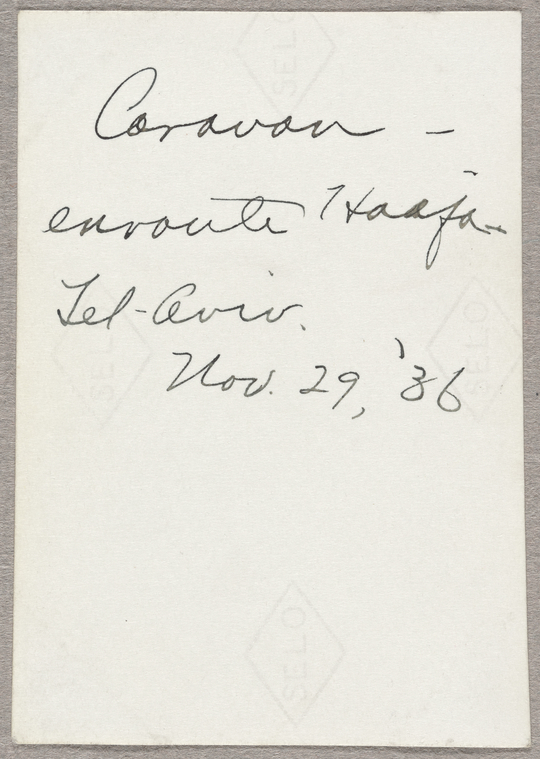 Caravan -
enroute Haifa-
Tel-Aviv.
Nov. 29, '36
SELO
SELO
SELO
SELO